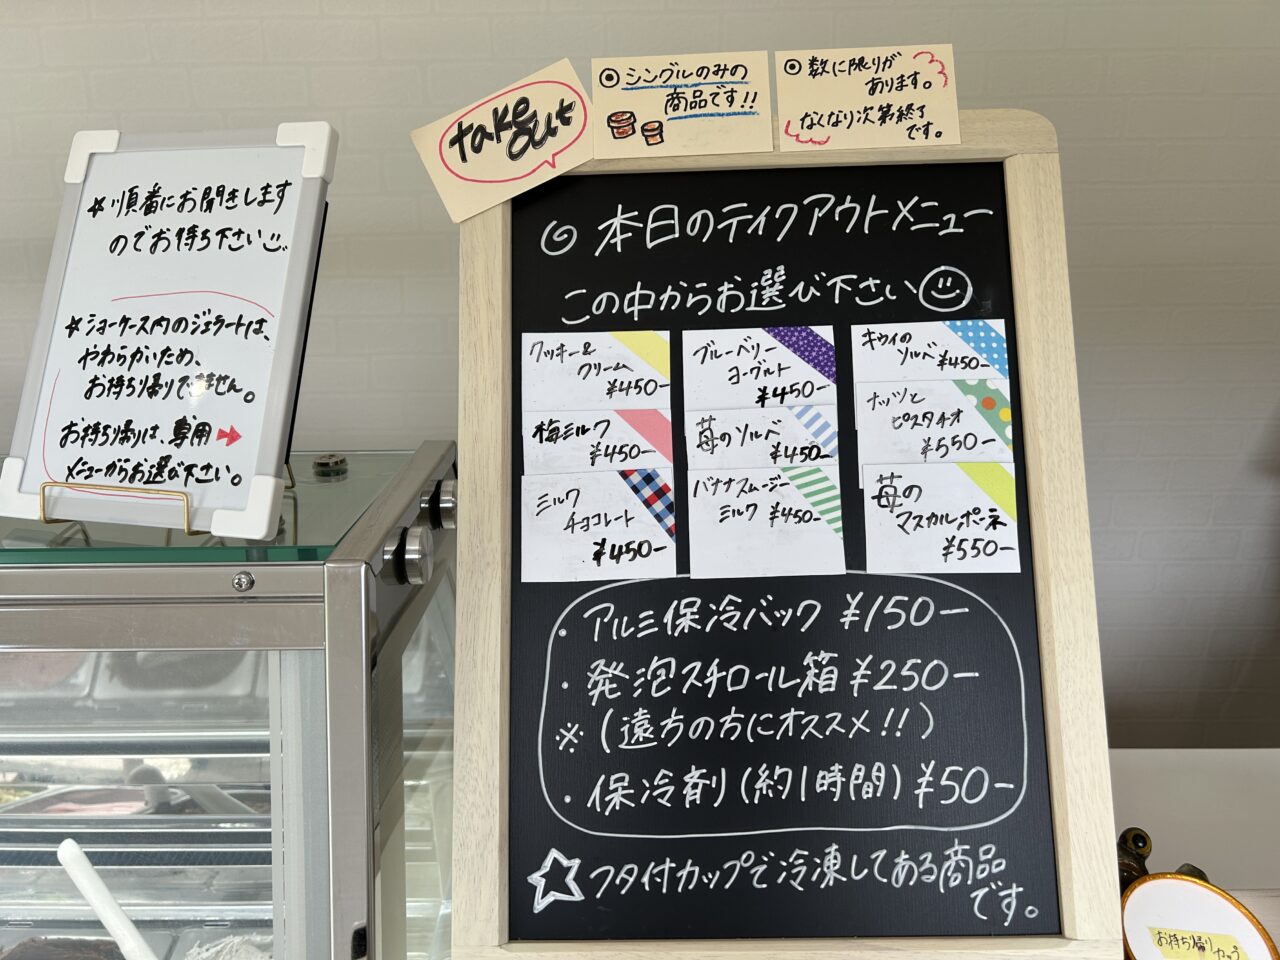 ☆順番にお聞きします
のでお待ち下さい
☆ショーケース内のジェラートは、
やわらかいため、
お持ち帰りできません。
お持ち帰りは、専用
メニューからお選び下さい。
take
out
◎シングルのみの
商品です!!
◎数に限りが
あります。
なくなり次第終了
です。
◎本日のテイクアウトメニュー
この中からお選び下さい
クッキー&
クリーム
¥450-
梅ミルク
¥450-
ミルク
チョコレート
¥450-
ブルーベリー
ヨーグルト
¥450-
苺のソルベ
¥450-
バナナスムージー
ミルク ¥450-
キウイの
ソルベ ¥450-
ナッツと
ピスタチオ
¥550-
苺の
マスカルポーネ
¥550-
・アルミ保冷バック ¥150-
・発泡スチロール箱 ¥250-
※(遠方の方にオススメ!!)
・保冷剤(約1時間) ¥50-
☆フタ付カップで冷凍してある商品
です。
お持ち帰り
カップ